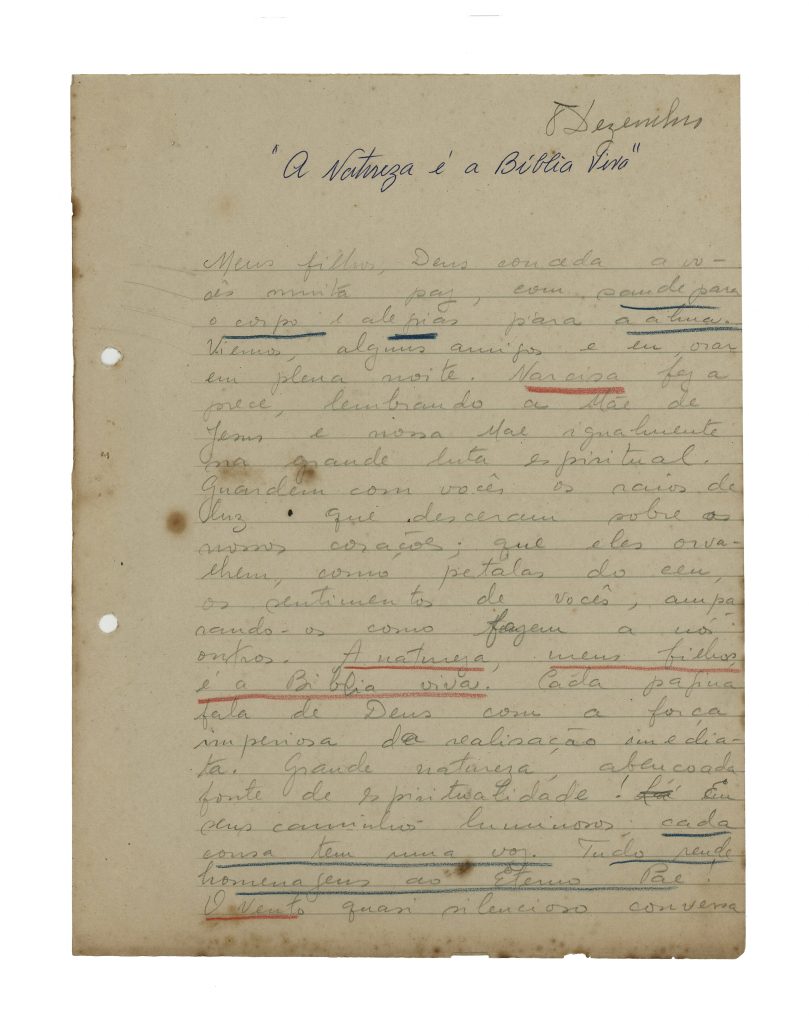 8 Dezembro
"A Natureza é a Bíblia Viva"
Meus filhos, Deus conceda a vo-
cês muita paz, com saude para
o corpo e alegrias para a alma.
Viemos, alguns amigos e eu, orar
em plena noite. Narcisa fez a
prece, lembrando a Mãe de
Jesus e nossa Mãe igualmente
na grande luta espiritual.
Guardem com vocês os raios de
luz que desceram sobre os
nossos corações; que eles orva-
lhem, como petalas do ceu,
os sentimentos de vocês, ampa
rando-os como fazem a nós
outros. A natureza, meus filhos,
é a Biblia viva. Cada pagina
fala de Deus com a força
imperiosa da realisação imedia-
ta. Grande natureza, abençoada
fonte de espiritualidade! Em
seus caminhos luminosos cada
cousa tem uma voz. Tudo rende
homenagens ao Eterno Pae!
O vento quasi silencioso conversa